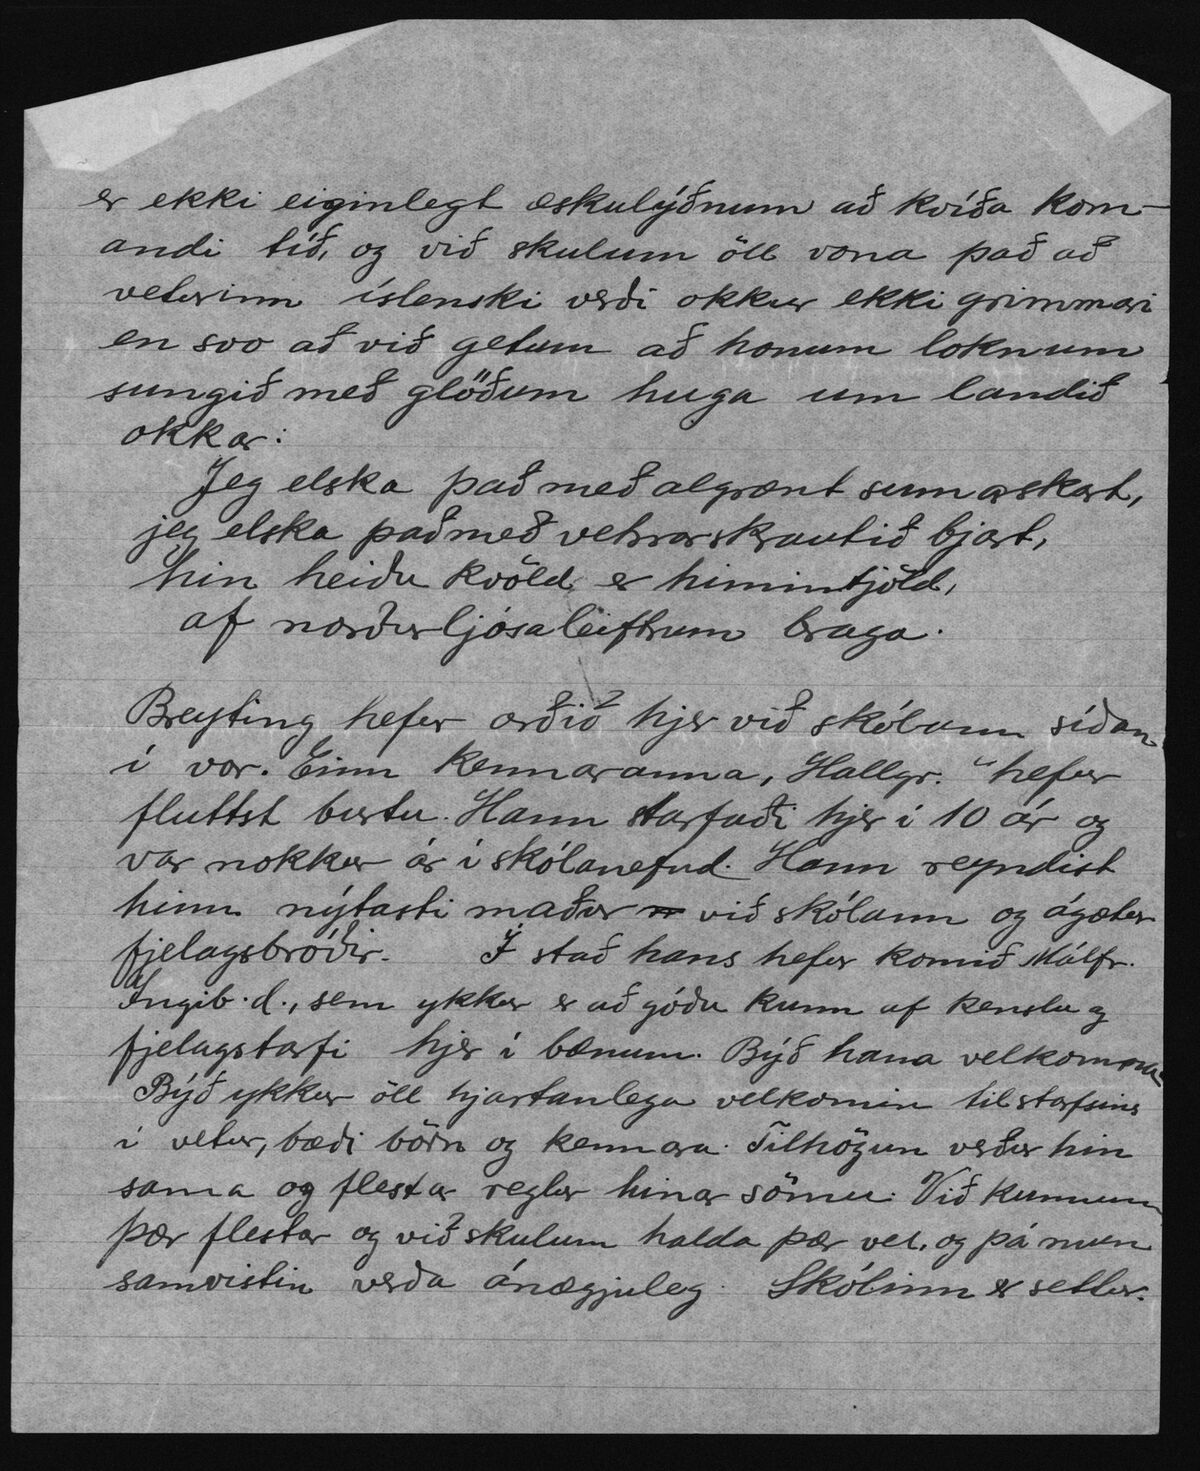 er ekki eiginlegt æskulýðnum að kvíða kom-
andi tíð, og við skulum öll vona það að
veturinn íslenski verði okkur ekki grimmari
en svo að við getum að honum loknum
sungið með glöðum huga um landið
okkar:
Jeg elska það með algrænt sumarskart,
jeg elska það með vetrarskrautið bjart,
hin heiðu kvöld er himintjöld,
af norðurljósaleiftrum braga.
Breyting hefur orðið hjer við skólann síðan
í vor. Einn kennaranna, Hallgr. " hefur
fluttst burtu. Hann starfaði hjer í 10 ár og
var nokkur ár í skólanefnd. Hann reyndist
hinn nýtasti maður við skólann og ágætur
fjelagsbróðir. Í stað hans hefur komið Málfr.
Ingib.d., sem ykkur er að góðu kunn af kenslu og
fjelagstarfi hjer í bænum. Býð hana velkomna
Býð ykkur öll hjartanlega velkomin til starfsins
í vetur, bæði börn og kennara. Tilhögun verður hin
sama og flestar reglur hinar sömu. Við kunnum
þær flestar og við skulum halda þær vel, og þá mun
samvistin verða ánægjuleg. Skólinn er settur.